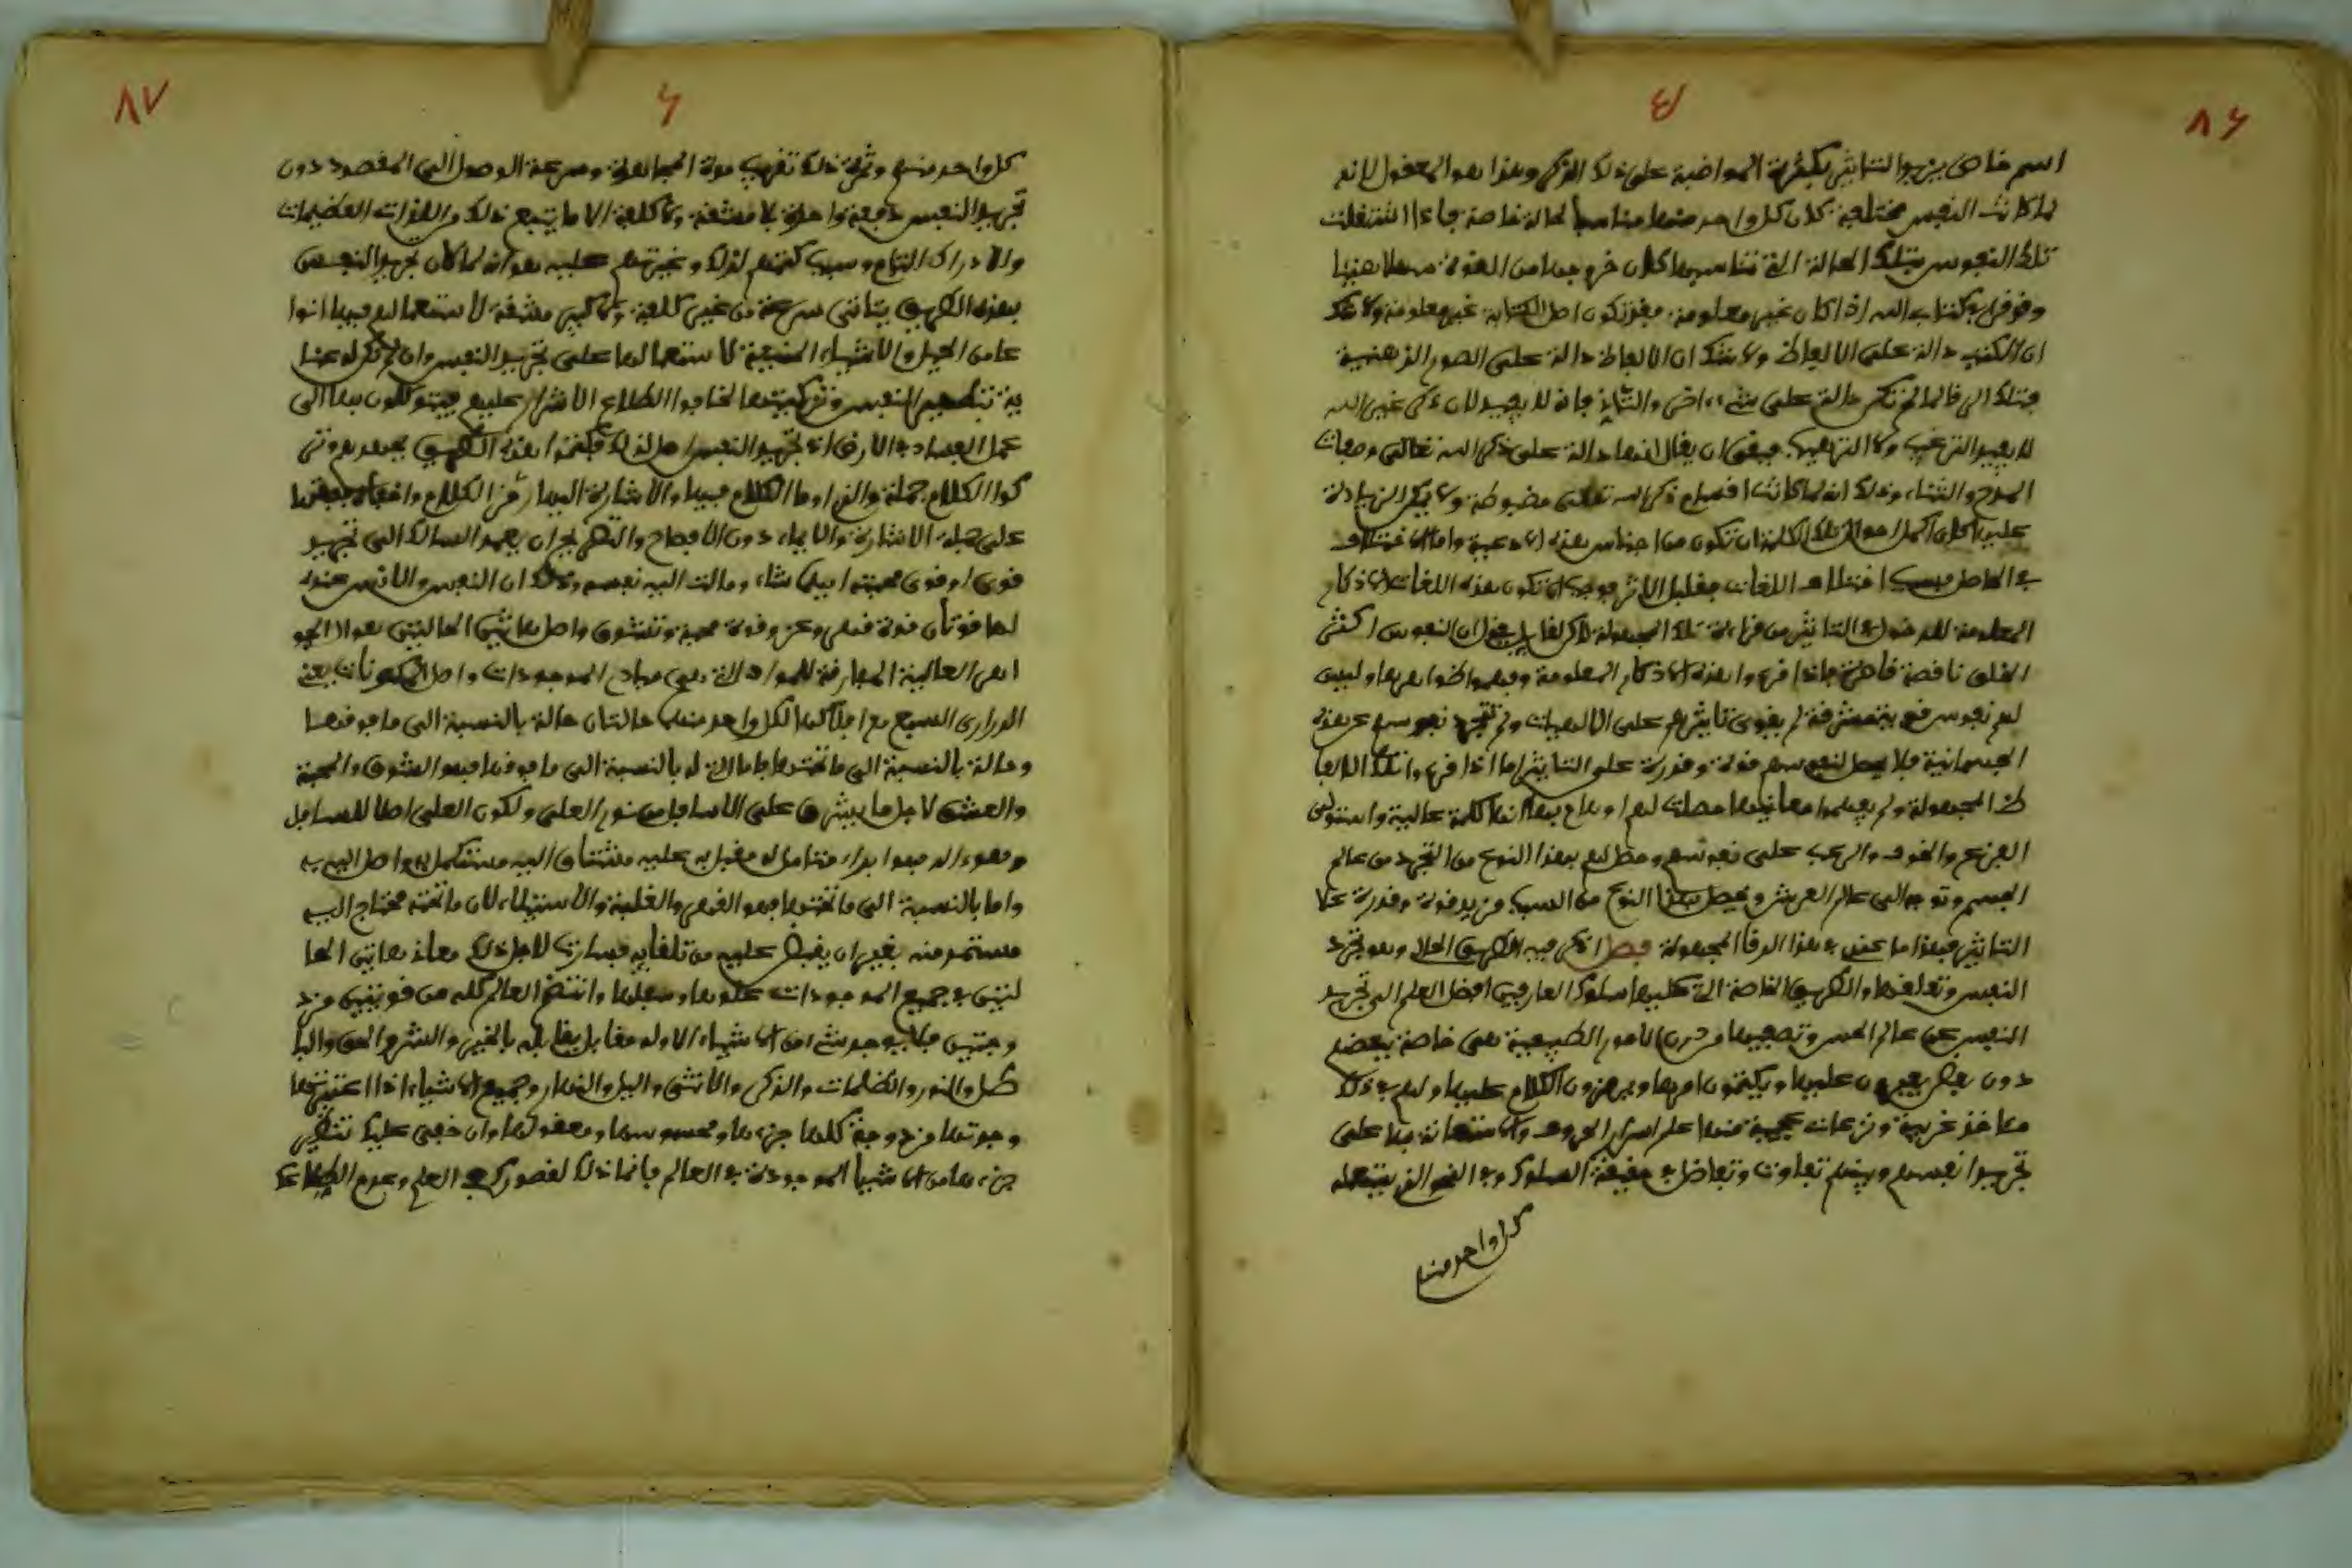 ٨٦
٤
اسم خاص يزيد التاثير بكثرة المواضبة على ذلك الذكر وهذا هو المعقول لانه
لما كانت النفوس مختلفة كان كل واحد منها مناسبا لحالة خاصة فاذا اشتغلت
تلك النفوس بتلك الحالة التي تناسبها كان خروجها من القوة سهلا هينا
وقوفها وكتاب الله اذا كان غير معلومة فقد تكون اصل الكتابة غير معلومة ولا شك
ان الكتب دالة على الالفاظ ولا شك ان الالفاظ دالة على الصور الذهنية
فتلك الرقا لما لم تكن دالة على شيء اخر والثاني فانه لا يفيد لان ذكر غير الله
لا يفيد الترغيب ولا الترهيب فبقى ان يقال انها دالة على ذكر الله تعالى وصفات
المدح والثناء وذلك انه لما كانت اقسام ذكر الله تعالى مضبوطة ولا يمكن الزيادة
عليها كان اكمل احوال تلك الكلمة ان تكون من اجناس هذه الادعية واما الاختلاف
الحاصل بسبب اختلاف اللغات فقليل الاثر فوجب ان تكون هذه اللغات الاذكار
المعلومة للدخول في التاثير من قراءة تلك المجهولة لاكن لقايل يقول ان النفوس اكثر
الخلق ناقصة قاصرة فاذا قرءوا هذه الاذكار المعلومة وفهموا ظواهرها وليس
لهم نفوس قوية مشرقة لم يقوى تاثيرهم على الالهيات ولم تتجرد نفوسهم عن هذه
الجسمانية فلا يحصل لنفوسهم قوة وقدرة على التاثير اما اذا قرءوا تلك الالفا
ظ المجهولة ولم يفهموا معانيها حصلت لهم اوهام بها انها كلمة عالية واستولى
الفزع والخوف والرعب على نفوسهم وحصل لهم بهذا النوع من التجرد من عالم
الجسم وتوجه الى عالم العرش ويحصل بهذا النوع من السبب مزيد قوة وقدرة على
التاثير فهذا ما عندي في هذا الرقا المجهولة فصل اذكر فيه الطريق الحلال وهو تجرد
النفس وتعلقها والطريق الخاصة التي عليها سلوك العارفين افضل العلم الى تجريد
النفس عن عالم الحس وتصفيها من درن الامور الطبيعية هي خاصة ببعضهم
دون بعض يغيرون عليها ويكتمون امرها ويرمزون الكلام عليها ولهم في ذلك
مماخذ غريبة ونزعات عجيبة منها علم اسرار الحروف والاستعانة بها على
تجريد انفسهم وبينهم تفاوت وتفاضل في حقيقة السلوك وفي النحو الذي ينتحله
كل واحد منهم
٨٧
٦
كل واحد منهم وثمرة ذلك تقريب مدة المجاهدة وسرعة الوصول الى المقصود دون
تجريد النفس دفعة واحدة بلا مشقة ولا كلفة الا ما يتبع ذلك من اللذات العظيمات
والادراك التام وسبب كتمهم لذلك وغيرتهم عليه هو انه لما كان تجريد النفس
بهذه الطريق يتاتى سرعة من غير كلفة ولا كبير مشقة لاستعمالهم فيها انوا
عا من الحيل والاشياء الخفية لاستعمالها على تجريد النفس وان لم تكن له عنا
ية بتطهير النفس وتزكيتها لخافوا اطلاع الاشرار عليهم فيتوصلون بها الى
عمل الفساد في الارض اذ تجريد النفس اصل لذلك فكتموا هذه الطريق بجهدهم وتر
كوا الكلام جملة والذي اوما الكلام فيها والاشارة اليها رمز الكلام واخفاه بعضها
على جملة الاشارة والايماء دون الافصاح والتصريح ان يعمد السالك الى تجريد
قوى او قوى محبته ايها شاء ومالت اليه نفسه وذلك ان النفس والانفس عنده
لها قوتان قوة قهر وعز وقوة محبة وتشوق واصل هاتين الحالتين هو الاجو
اهر العالية المفارقة للمواد التي هي مبادي الموجودات واصل المكونات يعني
الدراري السبع مع افلاكها لكل واحد منها حالتان حالة بالنسبة الى ما فوقها
وحالة بالنسبة الى ما تحتها فاما التي له بالنسبة الى ما فوقها فهو الشوق والمحبة
والعشق لاجل ما يشرق على الاسافل من نور العلي ولكون العلي اصلا للسافل
وهو داله فهو ابدا متامل له مقبل به عليه مشتاق اليه مستكمل به واصل اليه به
واما بالنسبة الى ما تحتها فهو القهر والغلبة والاستيلاء لان ما تحته محتاج اليه
مستمد منه بغير ان يفيض عليه من تلقايه فسارت لاجل ذلك معاذ هاتين الحا
لتين في جميع الموجودات علوها وسفلها وانتظم العالم كله من قوتين مزد
وجتين فلا يوجد شيء من الاشياء الا وله مقابل يقابله بالخير والشر والحق والبا
طل والنور والظلمات والذكر والانثى واليل والنهار وجميع الاشياء اذا اعتبرتها
وجدتها مزدوجة كلها جزءها ومحسوسها ومعقولها وان خفى عليك تنظير
جزءها من الاشيا الموجودة في العالم فانما ذلك لقصورك في العلم وعدم الاطلاع